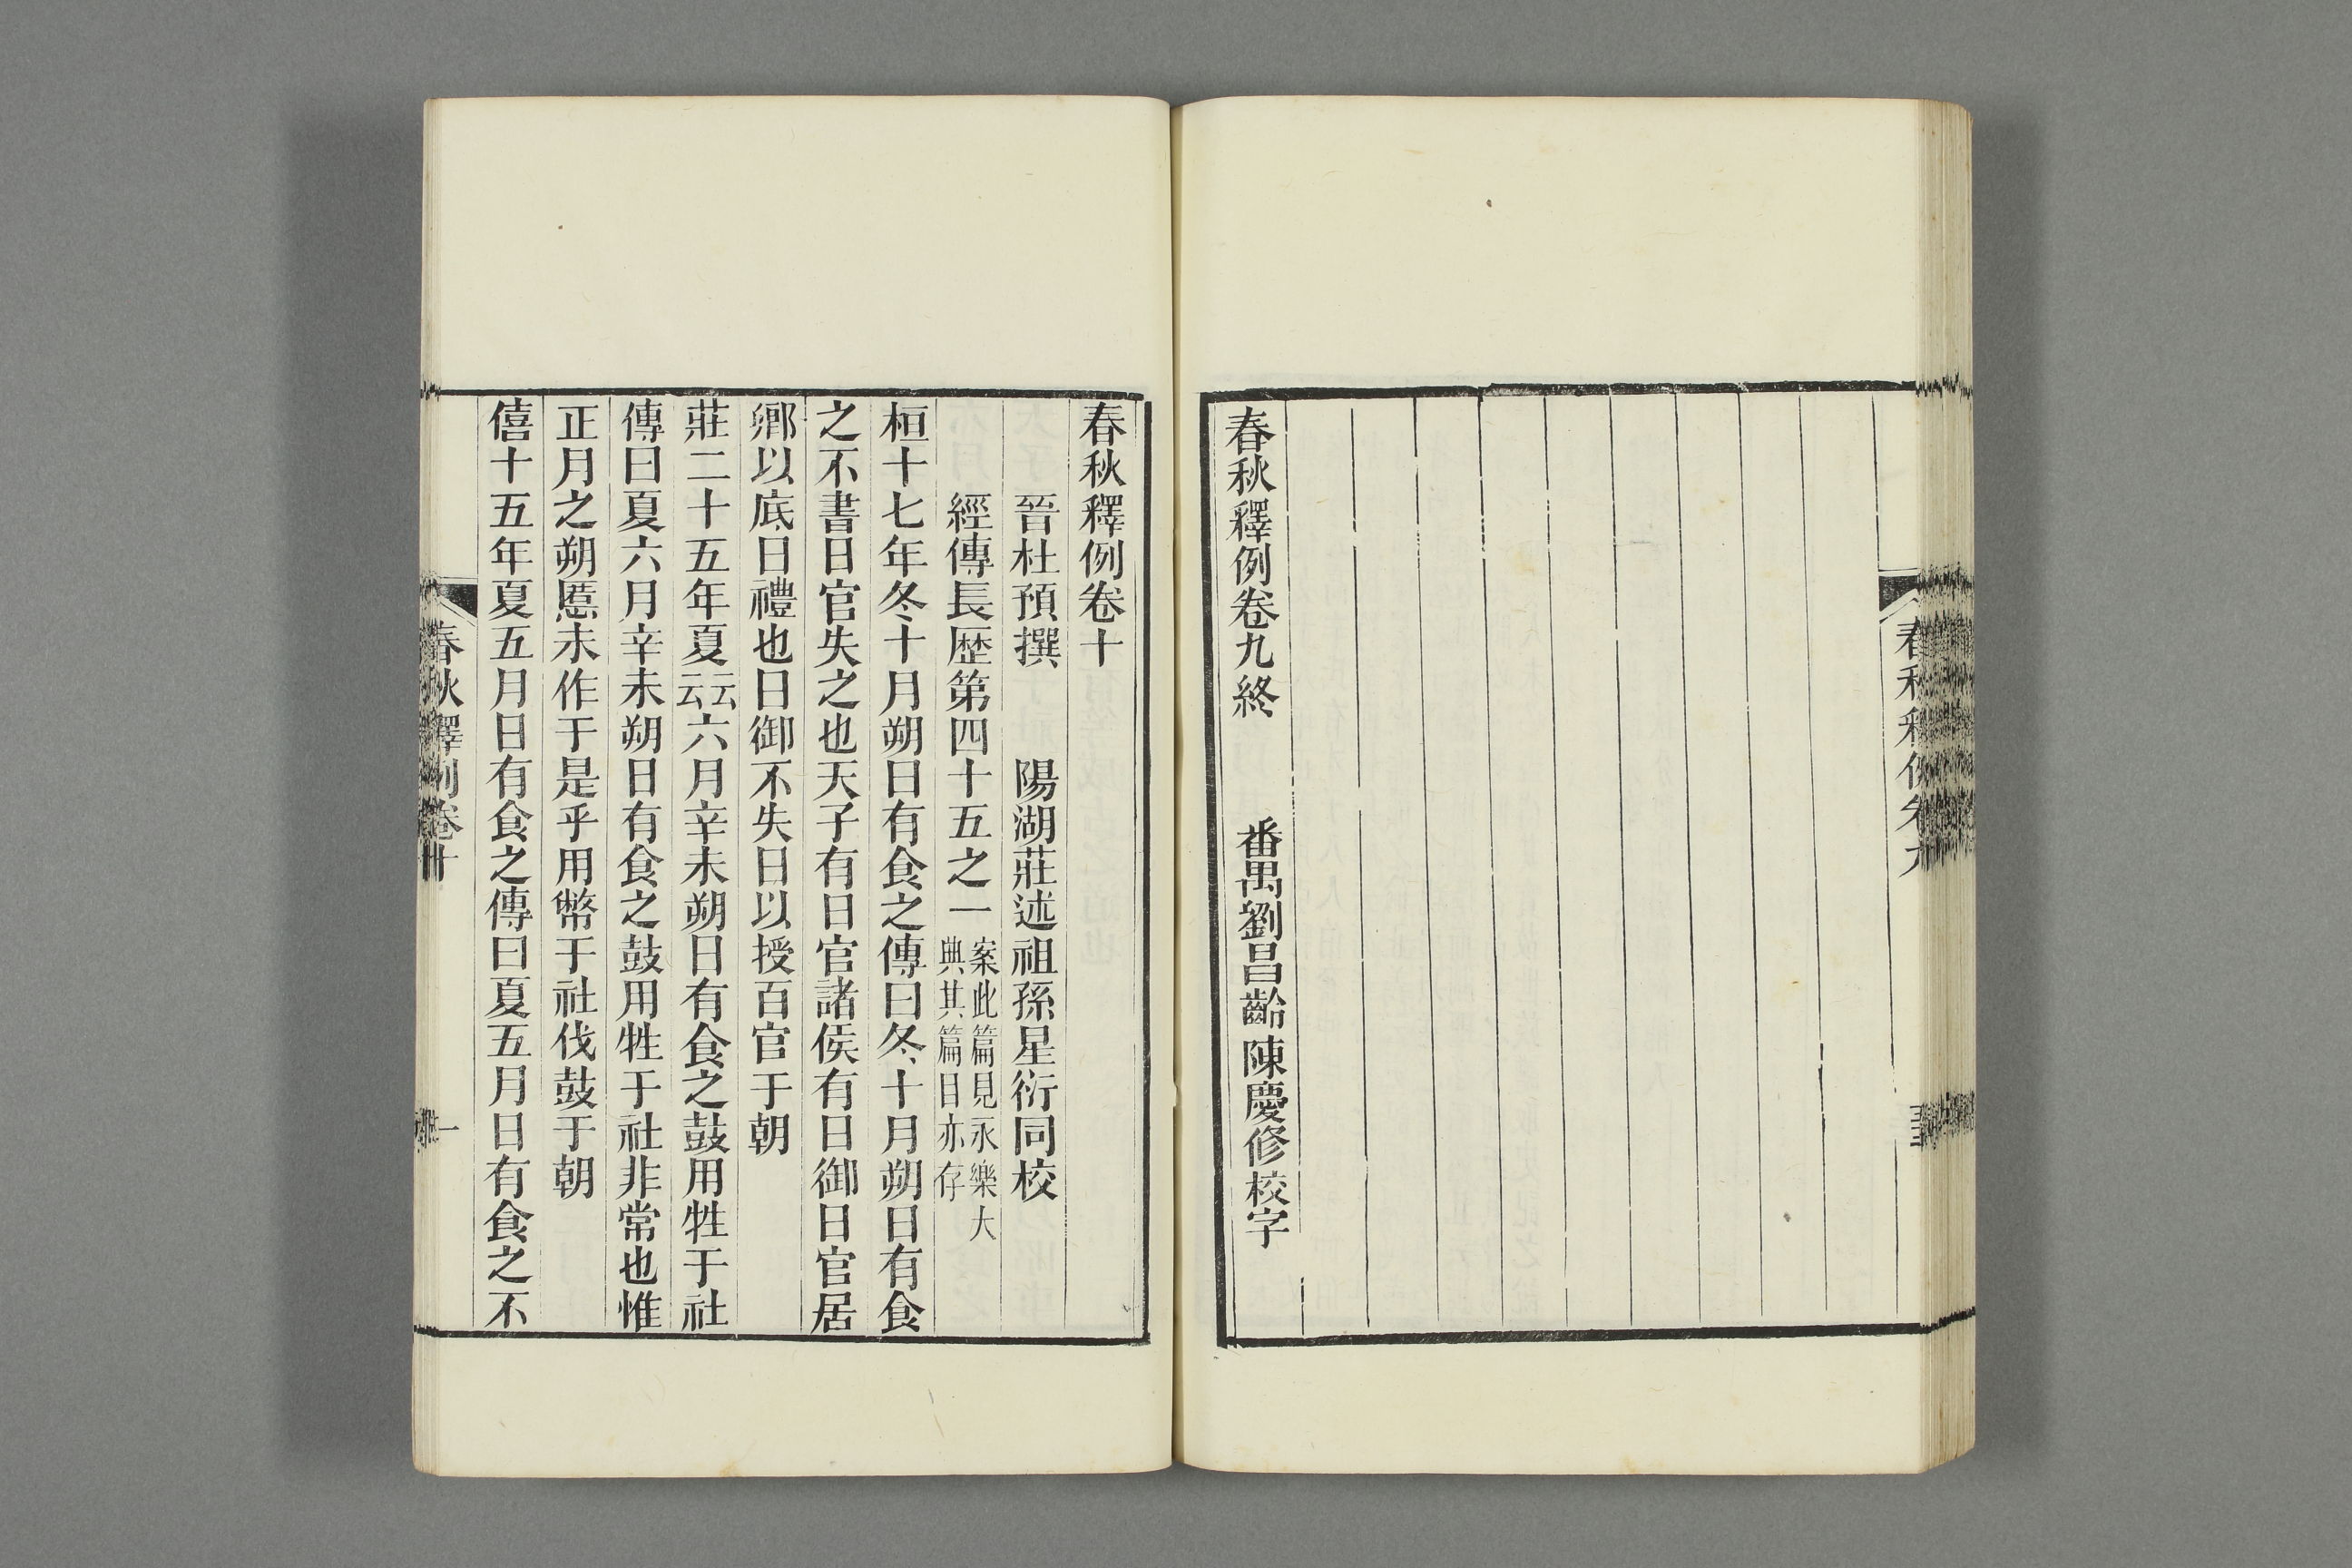 春秋釋例卷九
春秋釋例卷九終　番禺劉昌齡陳慶修校字
春秋釋例卷十
晉杜預撰　陽湖莊述祖孫星衍同校
經傳長歷第四十五之一案此篇見永樂大典其篇目亦存
桓十七年冬十月朔日有食之傳曰冬十月朔日有食
之不書日官失之也天子有日官諸侯有日御日官居
卿以底日禮也日御不失日以授百官于朝
莊二十五年夏云云六月辛未朔日有食之鼓用牲于社
傳曰夏六月辛未朔日有食之鼓用牲于社非常也惟
正月之朔慝未作于是乎用幣于社伐鼓于朝
僖十五年夏五月日有食之傳曰夏五月日有食之不
春秋釋例卷十
一